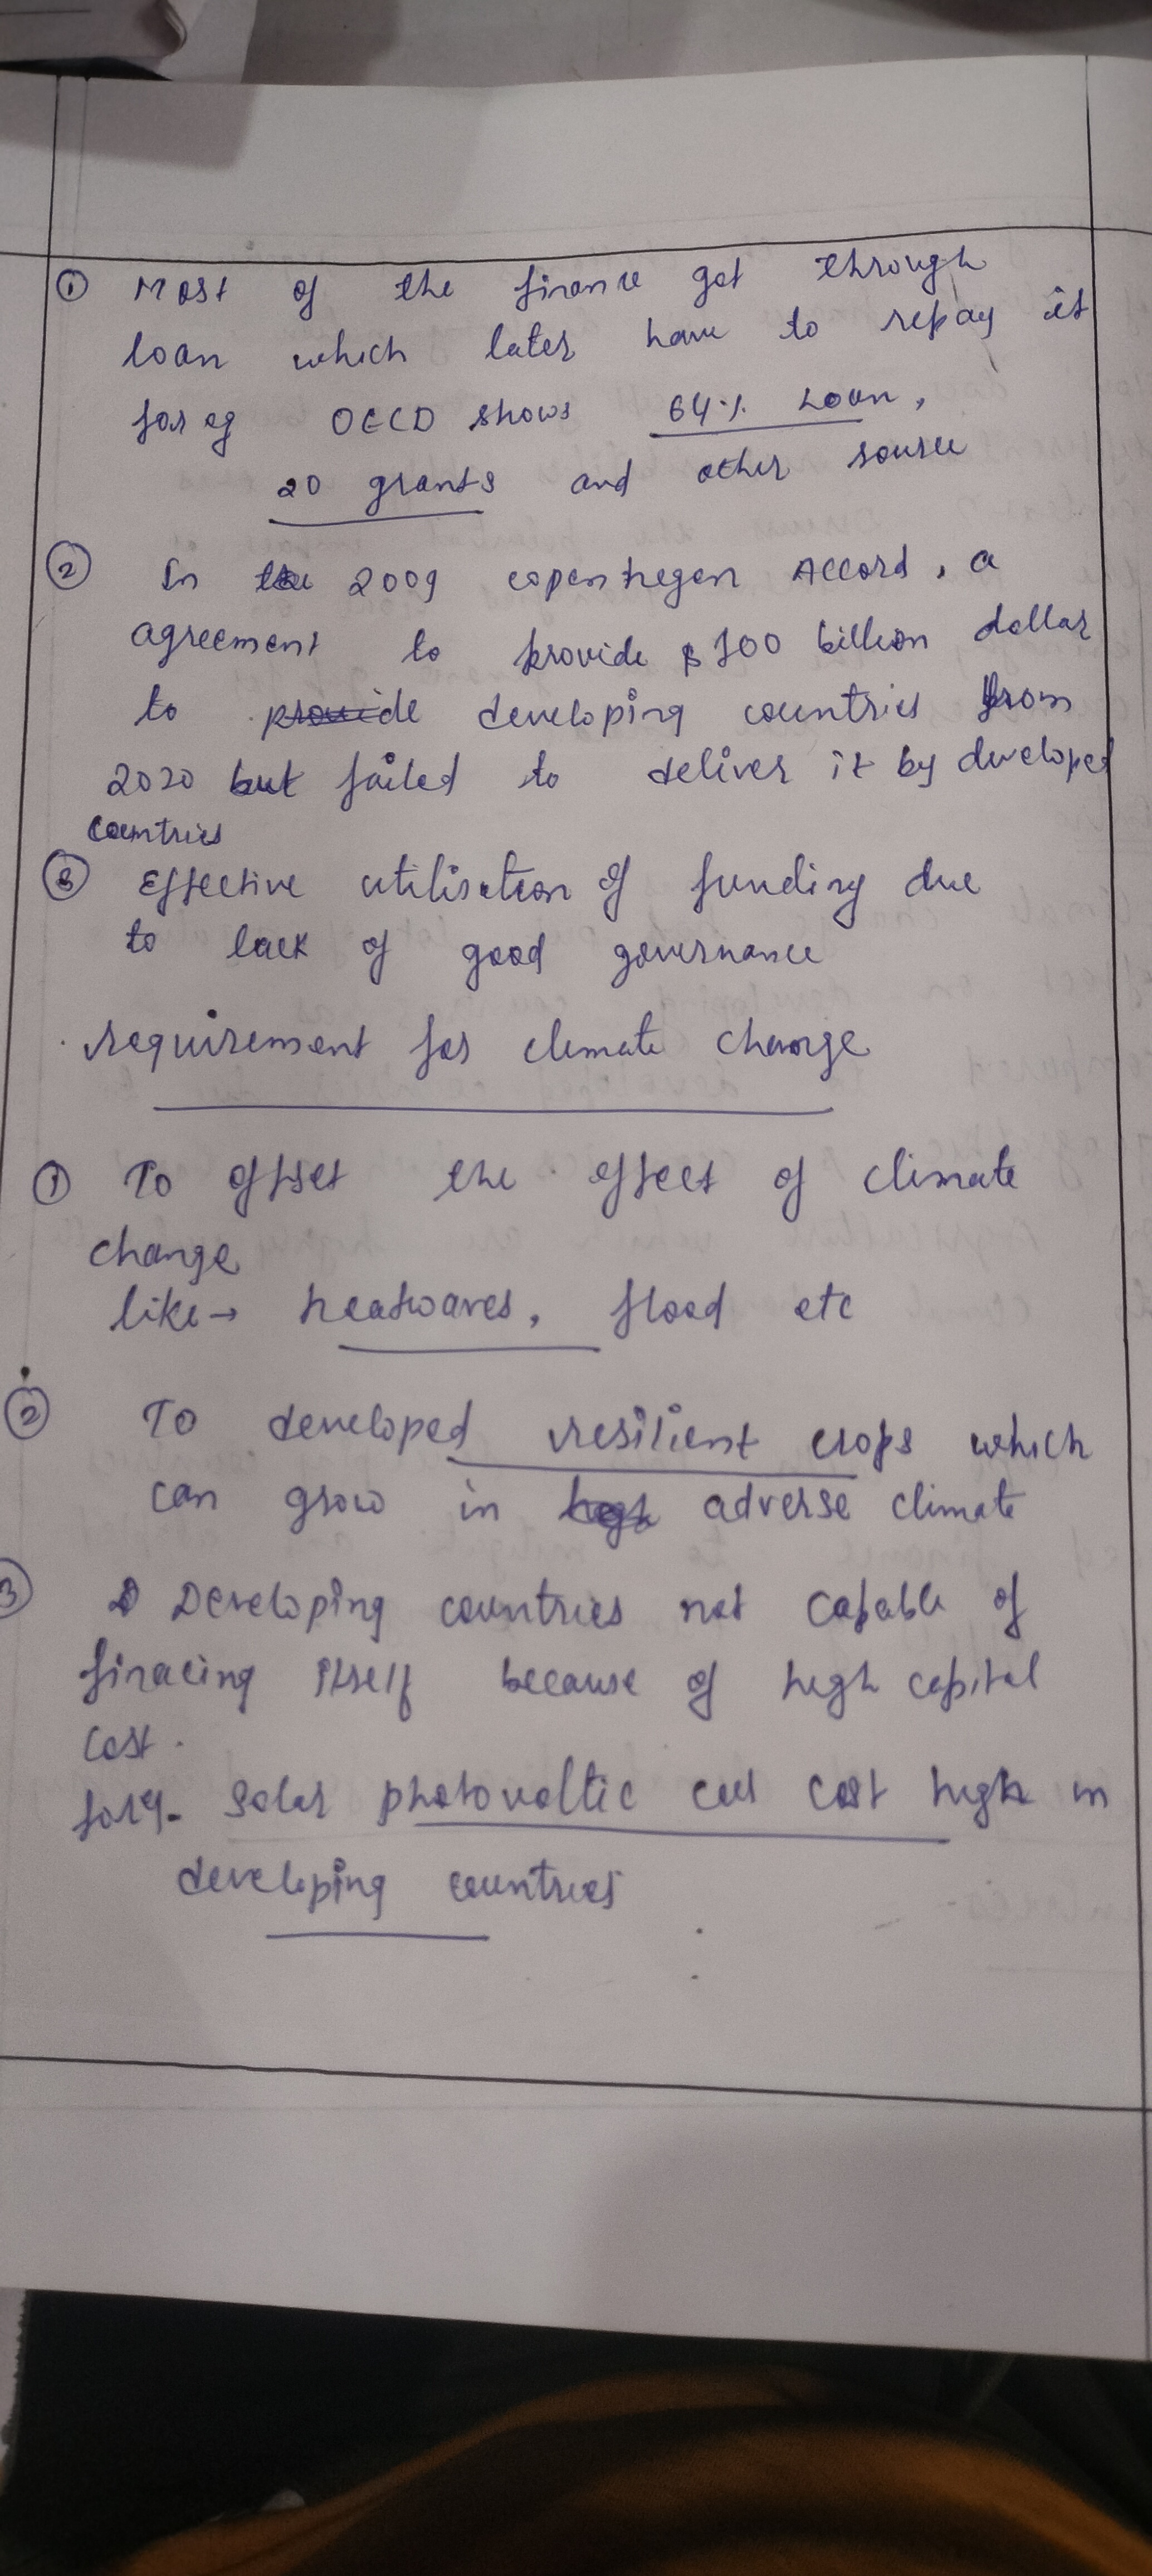 ① Most of the finance got through
loan which later have to repay it
for eg OECD shows 64% Loan,
20 grants and other source
② In 2009 copenhegen Accord, a
agreement to provide $ 100 billion dollar
to provide developing countries from
2020 but failed to deliver it by developed
countries
③ Effective utilisation of funding due
to lack of good governance
requirement for climate change
① To offset the effect of climate
change
like → heatwaves, flood etc
② To developed resilient crops which
can grow in adverse climate
③ Developing countries not capable of
finacing itself because of high capital
cost.
for eg - Solar photovoltic cell cost high in
developing countries